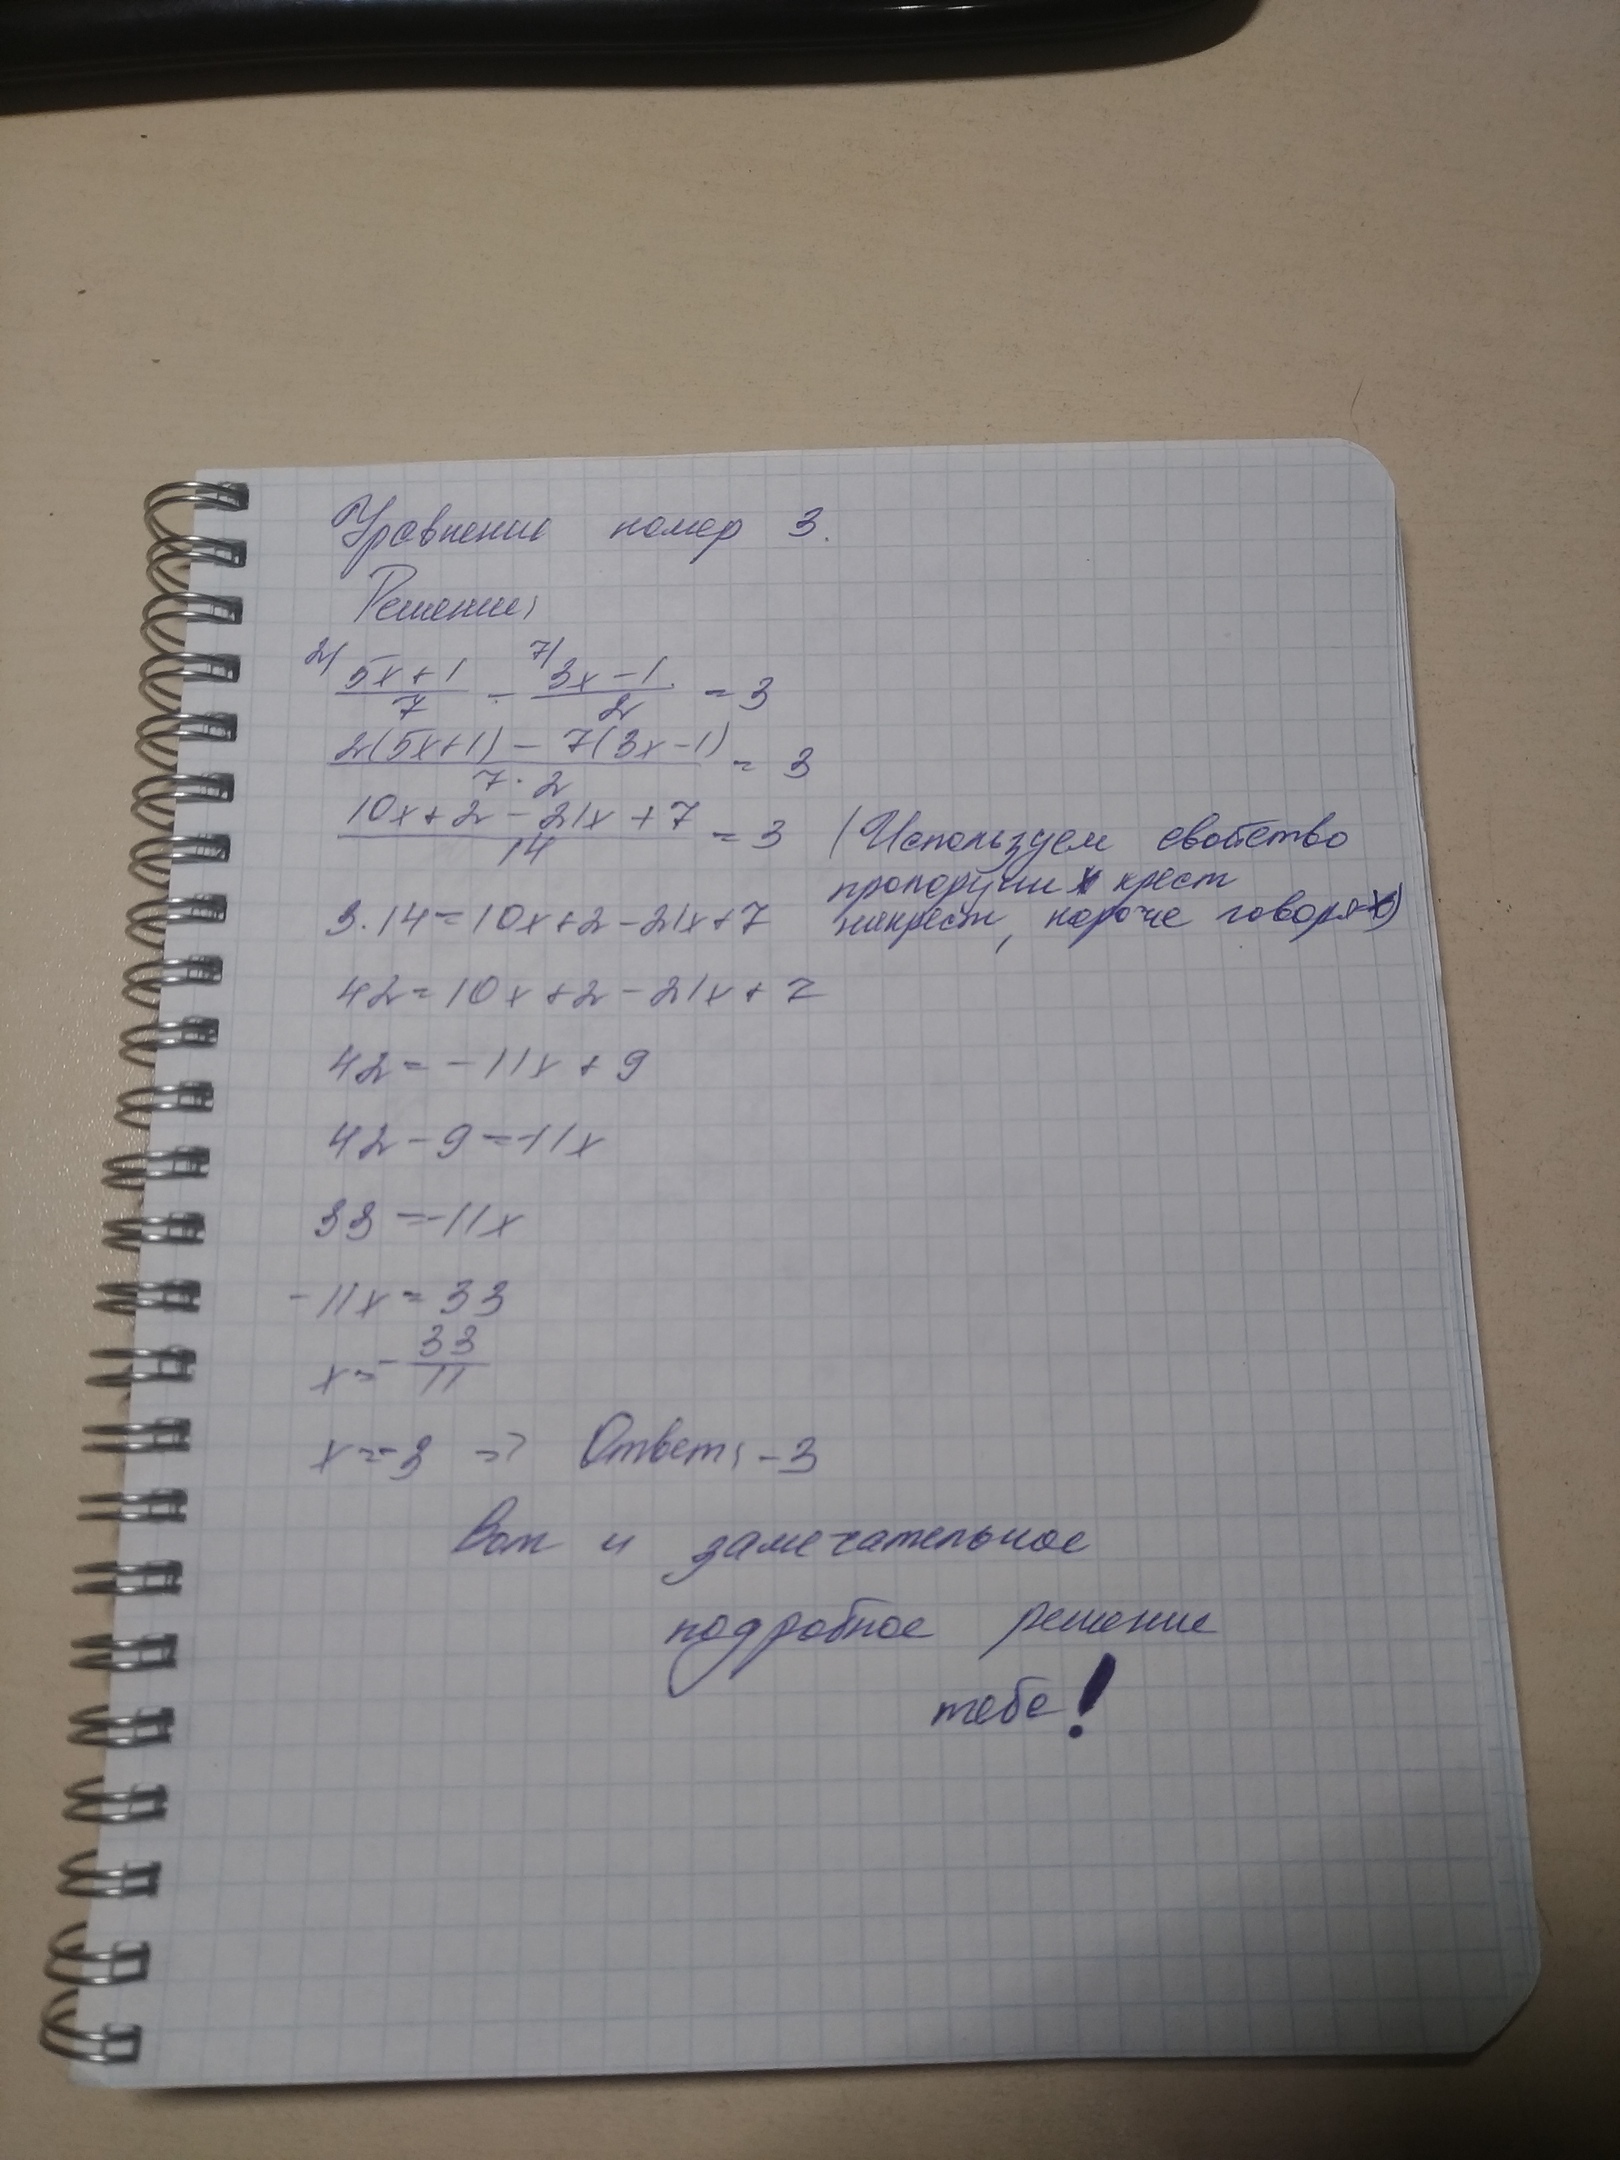 Уравнение номер 3.
Решение:
2/ 5x+1/7 - 7/ 3x-1/2 = 3
2(5x+1) - 7(3x-1)/7·2 = 3
10x+2-21x+7/14 = 3 (Используем свойство
пропорции крест
накрест, короче говоря)
3·14=10x+2-21x+7
42=10x+2-21x+7
42=-11x+9
42-9=-11x
33=-11x
-11x=33
x=-33/11
x=-3 => Ответ: -3
Вот и замечательное
подробное решение
тебе!